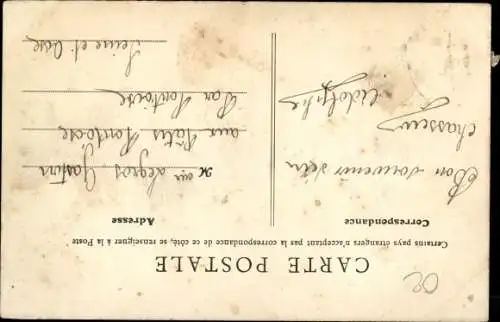 CARTE POSTALE
Certains pays étrangers n'acceptant pas la correspondance de ce côté, se renseigner à la Poste
Correspondance
Bon souvenir d'un
chasseur
Adolphe
Adresse
M
Legros Gaston
aux Pâtis Pontoise
Par Pontoise
Seine et Oise